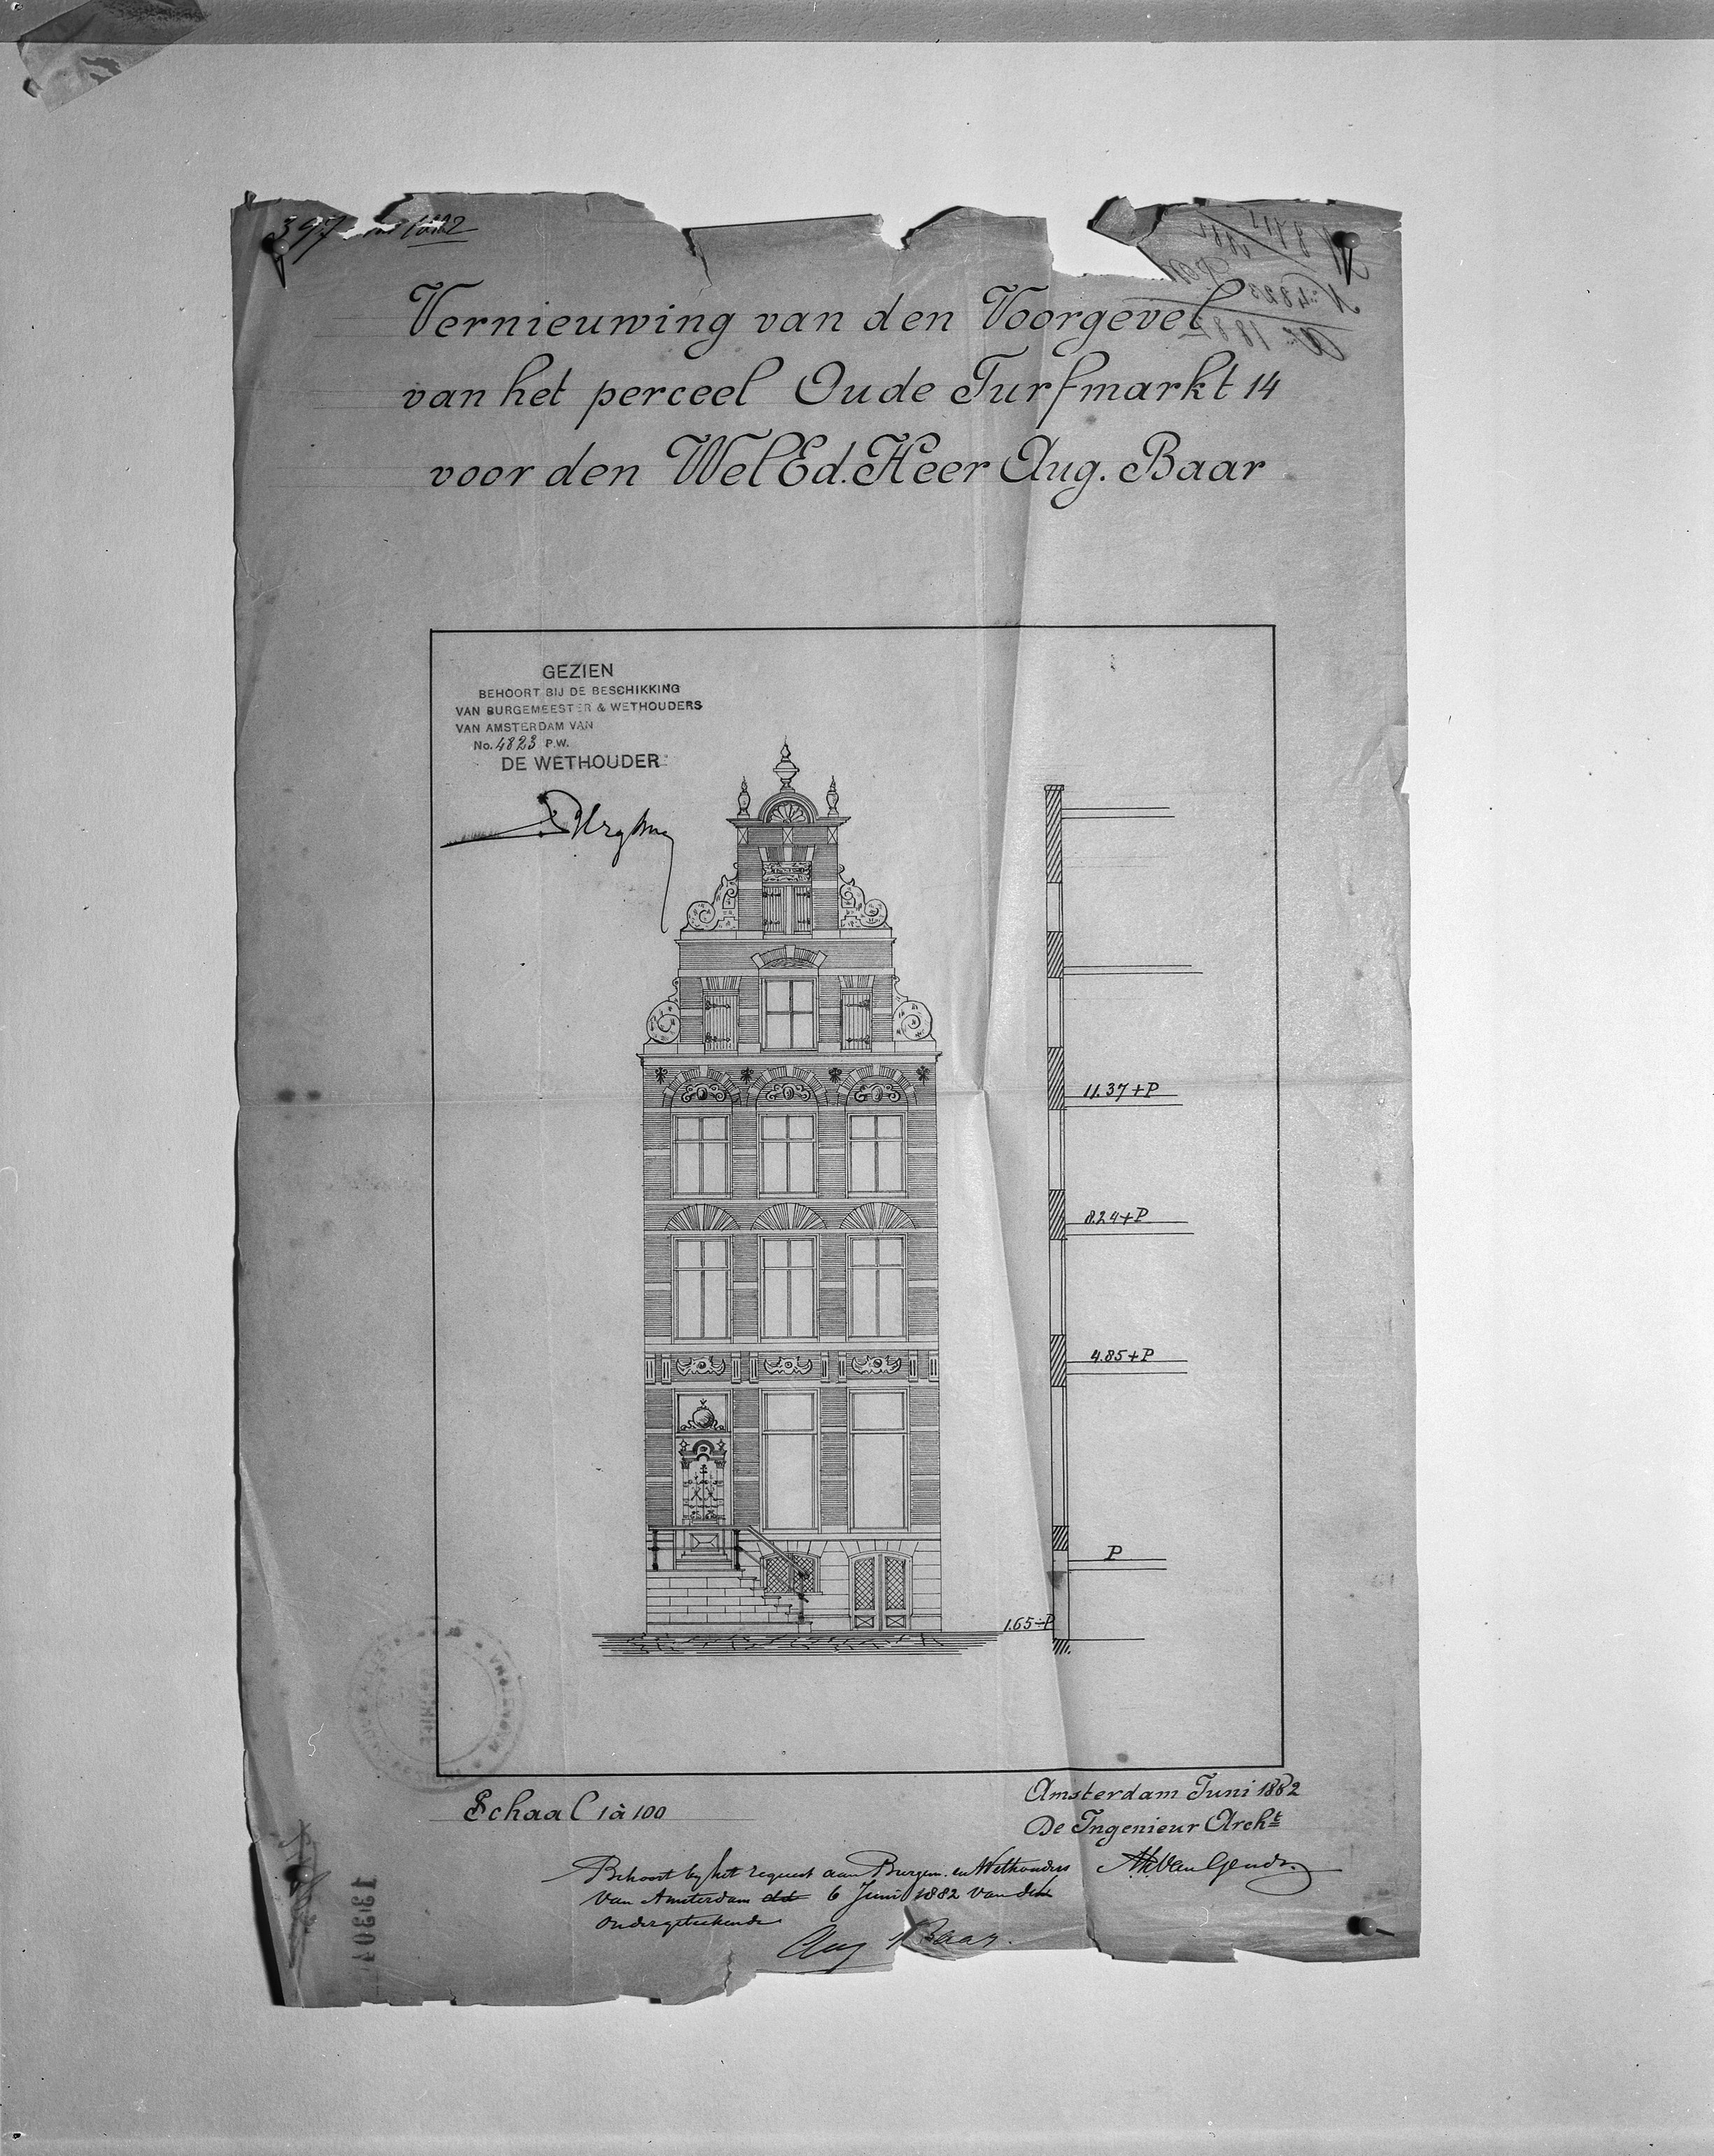 397 1882
Vernieuwing van den Voorgevel
van het perceel Oude Turfmarkt 14
voor den WelEd. Heer Aug. Baar
N 8411
1882
P.W.
No. 4823
Ao. 1882
GEZIEN
BEHOORT BIJ DE BESCHIKKING
VAN BURGEMEESTER & WETHOUDERS
VAN AMSTERDAM VAN
No. 4823 P.W.
DE WETHOUDER
11.37+P
8.24+P
4.85+P
P
1.65÷P
Schaal 1 à 100
Amsterdam Juni 1882
De Ingenieur Archt
AL van Gendt
Behoort bij het request aan Burgem. en Wethouders
van Amsterdam dd 6 Juni 1882 van den
ondergeteekende
Aug Baar.
19304